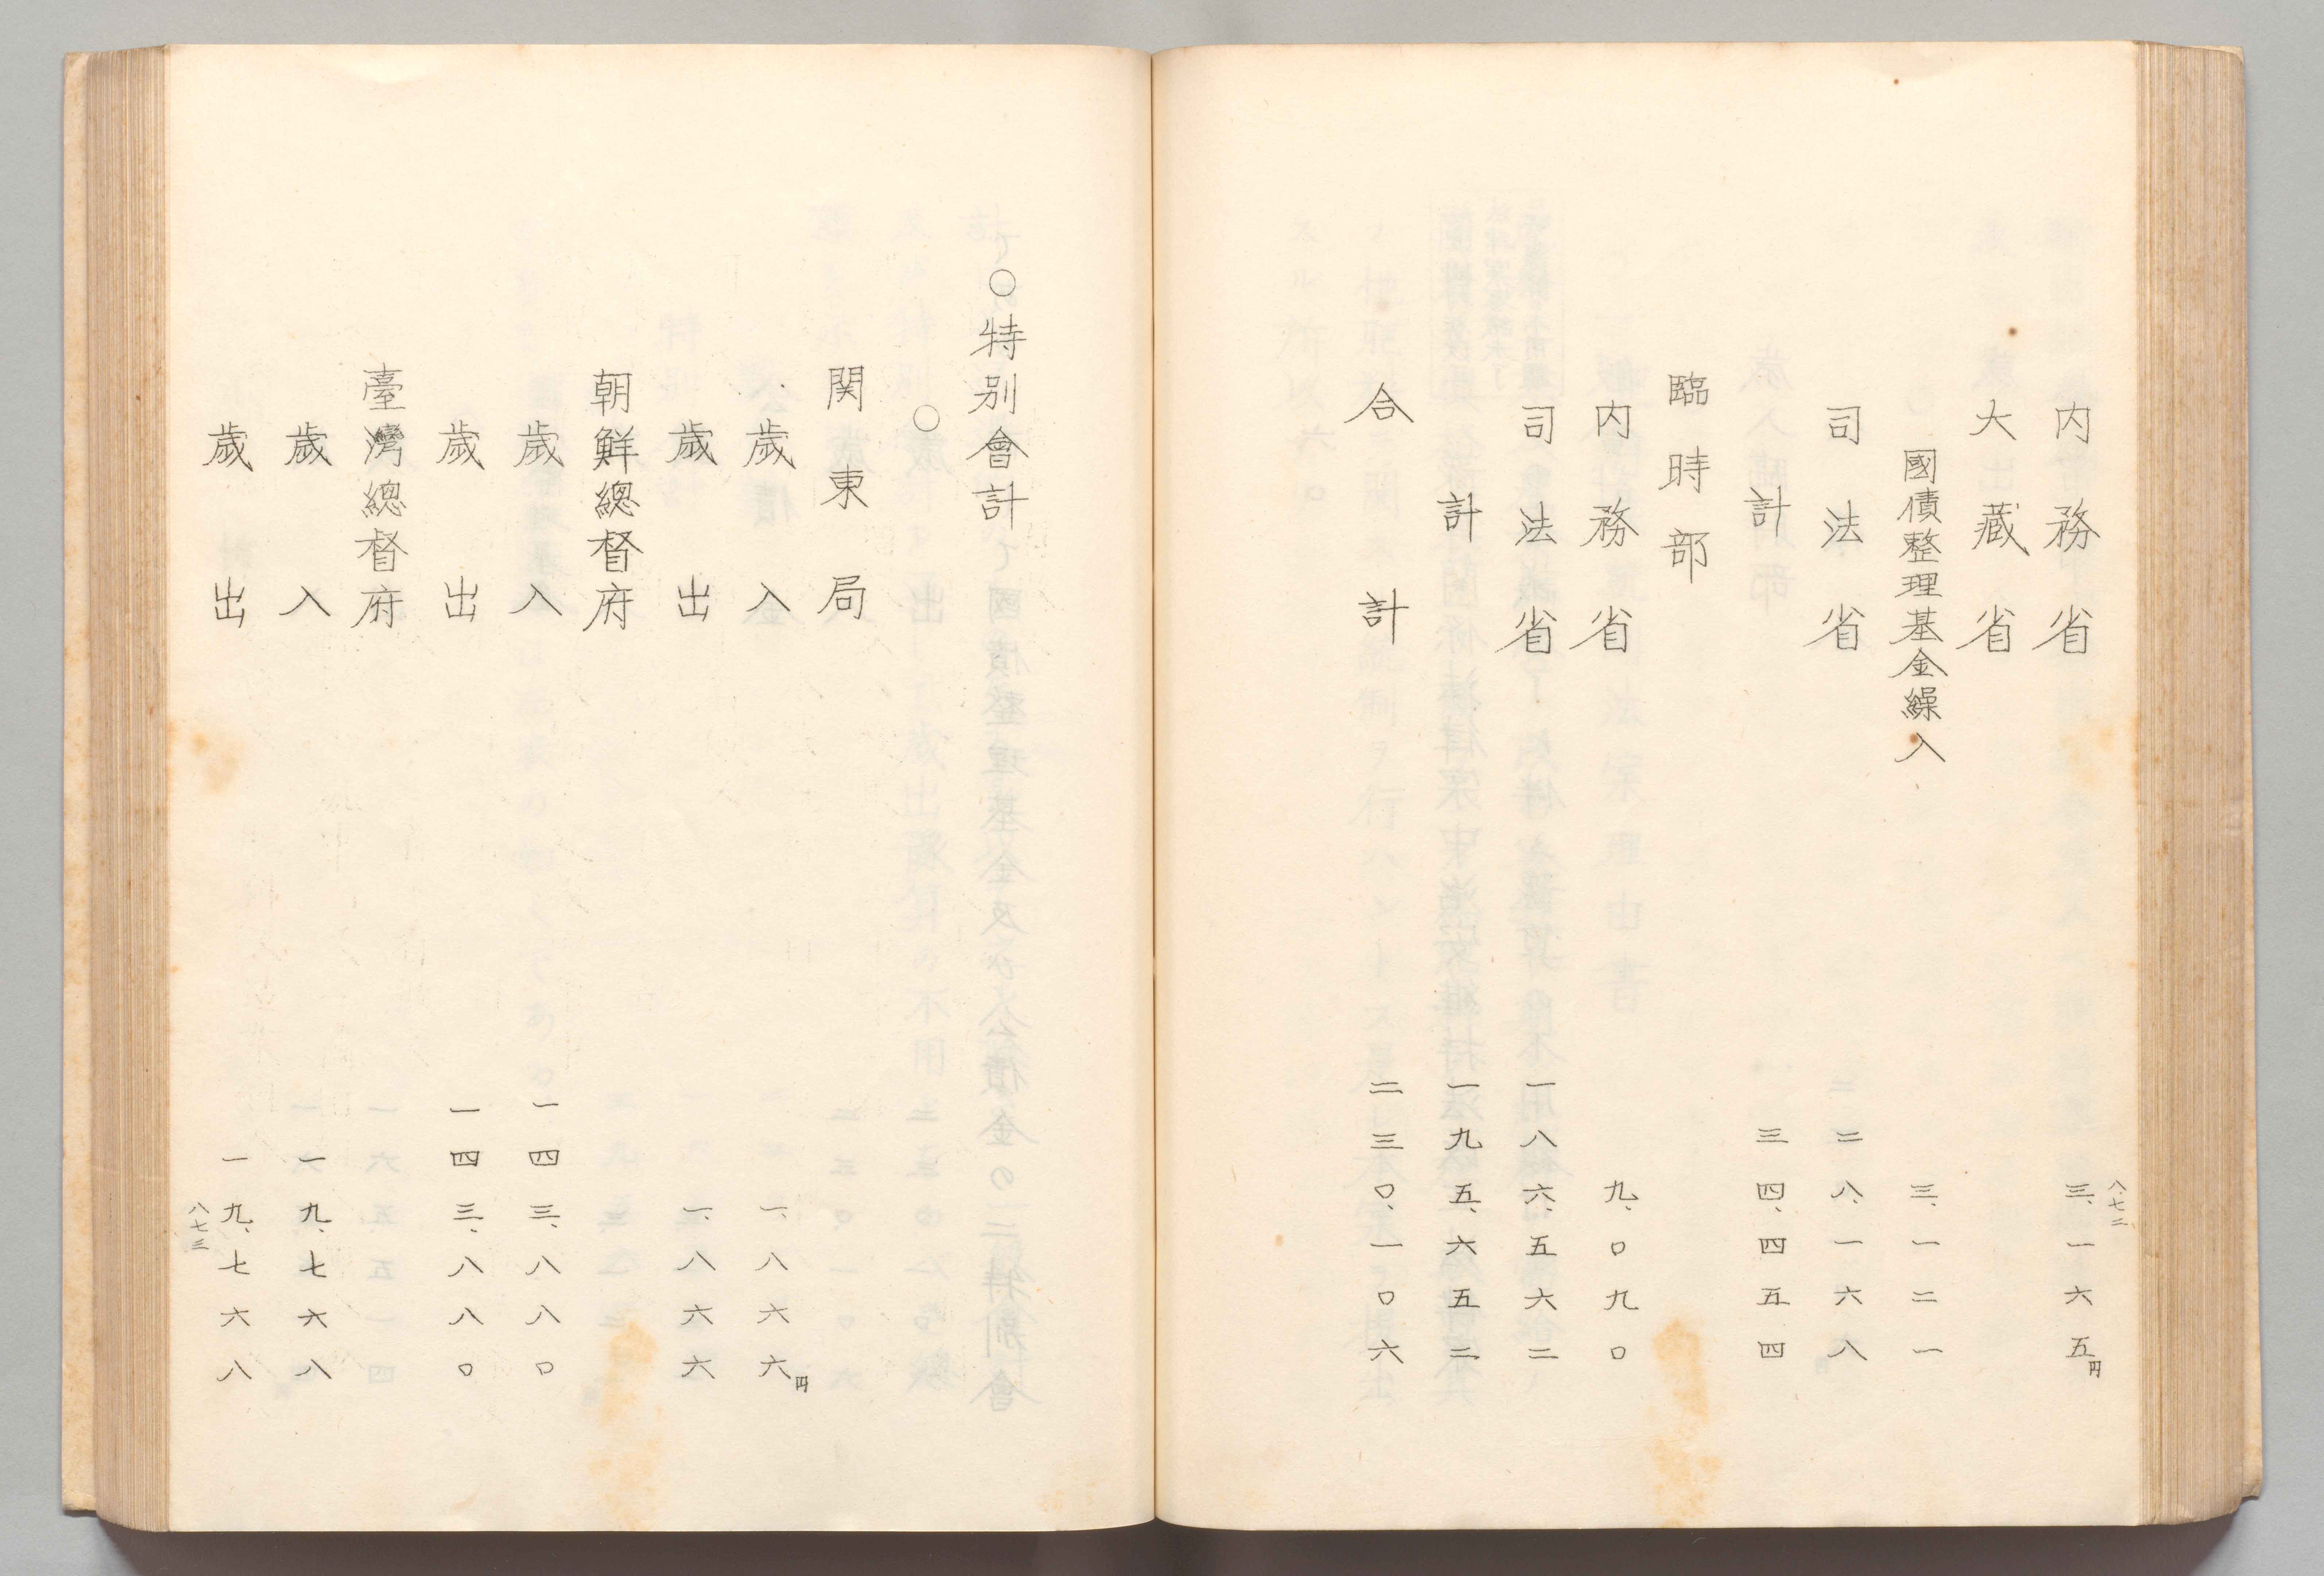 八七二
内務省 三、一六五円
大藏省
國債整理基金繰入 三、一二一
司法省 二八、一六八
計 三四、四五四
臨時部
内務省 九、〇九〇
司法省 一八六、五六二
計 一九五、六五二
合計 二三〇、一〇六
〇特別會計
〇
関東局
歳入 一、八六六円
歳出 一、八六六
朝鮮總督府
歳入 一四三、八八〇
歳出 一四三、八八〇
臺灣總督府
歳入 一九、七六八
歳出 一九、七六八
八七三